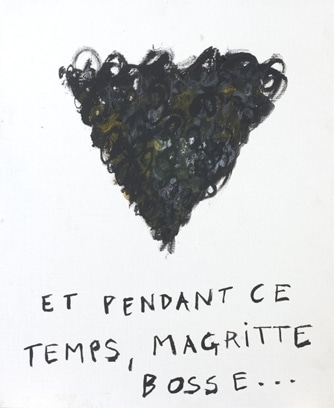 ET PENDANT CE
TEMPS, MAGRITTE
BOSSE...